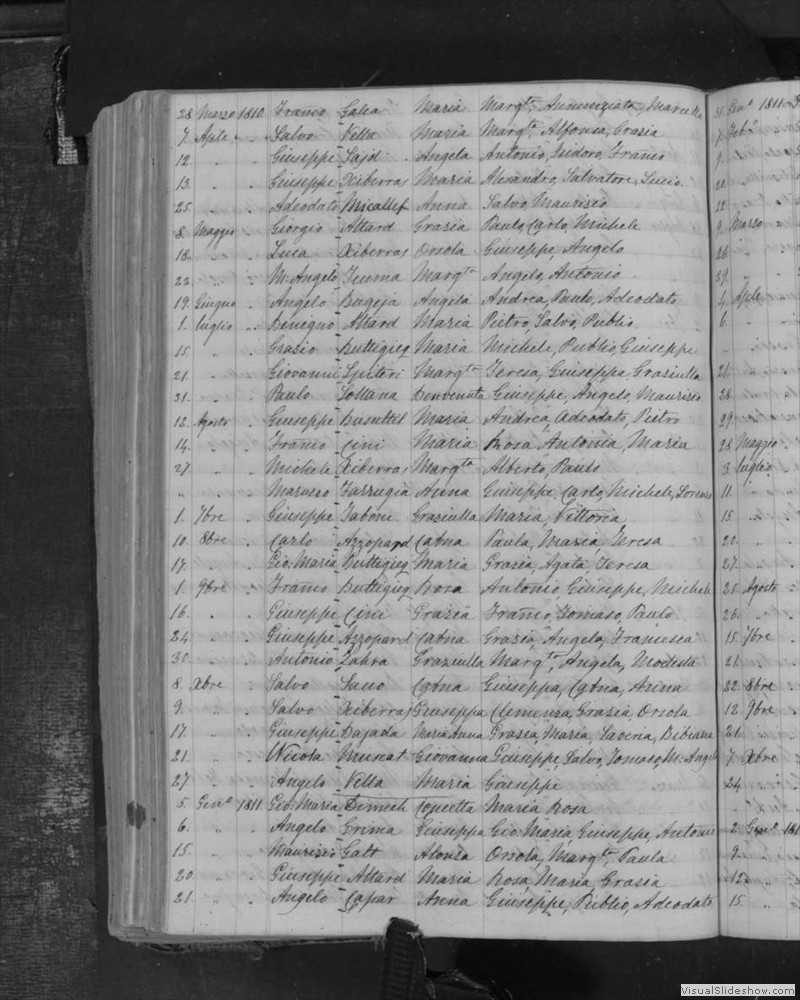 28 Marzo 1810 Franco Galea Maria Margta Annunziata, Maruzza
7 Aple " Salvo Vella Maria Margta Alfonsa, Grazia
12 " " Giuseppe Sajd Angela Antonio, Isidoro, Franco
13 " " Giuseppe Xiberras Maria Alesandro, Salvatore, Lucio
25 " " Adeodato Micallef Anna Salvo, Maurizio
8 Maggio " Giorgio Attard Grazia Paulo, Carlo, Michele
18 " " Luca Xiberras Orsola Giuseppe, Angelo
22 " " M. Angelo Teuma Margta Angelo, Antonio
19 Giugno " Angelo Bugeja Angela Andrea, Paulo, Adeodato
1 luglio " Benigno Attard Maria Pietro, Salvo, Publio
15 " " Grazio Buttigieg Maria Michele, Publio, Giuseppe
21 " " Giovanni Spiteri Margta Teresa, Giuseppa, Graziulla
31 " " Paulo Soltana Benvenuta Giuseppe, Angelo, Maurizio
12 Agosto " Giuseppe Busuttil Maria Andrea, Adeodato, Pietro
14 " " Franco Cini Maria Rosa, Antonia, Maria
27 " " Michele Xiberras Margta Alberto, Paulo
" " " Maruzzo Farrugia Anna Giuseppe, Carlo, Michele, Lorenzo
1 7bre " Giuseppe Tabone Graziulla Maria, Vittoria
10 8bre " Carlo Azzopard Catna Paula, Maria, Teresa
17 " " Gio. Maria Buttigieg Maria Grazia, Agata, Teresa
1 9bre " Franco Buttigieg Rosa Antonio, Giuseppe, Michele
16 " " Giuseppe Cini Grazia Franco, Tomaso, Paulo
24 " " Giuseppe Azzopard Catna Grazia, Angela, Francesca
30 " " Antonio Zahra Graziulla Margta, Angela, Modesta
8 Xbre " Salvo Catna Giuseppa, Catna, Anna
9 " " Salvo Xiberras Giuseppa Clemenza, Grazia, Orsola
17 " " Giuseppe Bajada Maria Anna Grazia, Maria, Saveria, Bibiana
21 " " Nicola Muscat Giovanna Giuseppe, Salvo, Tomaso, M. Angelo
27 " " Angelo Vella Maria Giuseppe
5 Geno 1811 Gio. Maria Dimech Concetta Maria Rosa
6 " " Angelo Grima Giuseppa Gio Maria, Giuseppe, Antonio
15 " " Maurizio Galt Alonza Orsola, Margta, Paula
20 " " Giuseppe Attard Maria Rosa, Maria, Grazia
21 " " Angelo Capar Anna Giuseppe, Publio, Adeodato
31 Geno 1811
7 Febo
9
20
22
9 Marzo
26
29
4 Aple
6
"
21
28
29
28 Maggio
3 luglio
11
15
20
27
25 Agosto
26
15 7bre
21
22 8bre
12 9bre
21
7 Xbre
24
"
2 Geno 181
9
12
15
VisualSlideshow.com